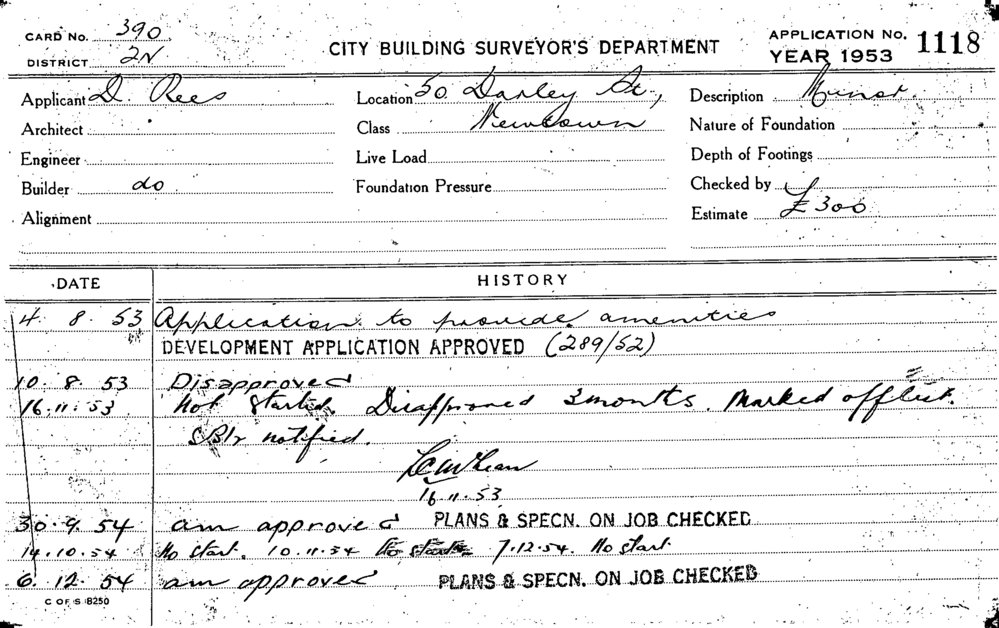 CARD No. 390
DISTRICT 2N
CITY BUILDING SURVEYOR'S DEPARTMENT
APPLICATION No. 1118
YEAR 1953
Applicant D. Rees
Location 50 Darley St.,
Description Minor.
Architect
Class Newtown
Nature of Foundation
Engineer
Live Load
Depth of Footings
Builder do
Foundation Pressure
Checked by
Alignment
Estimate £300
DATE HISTORY
4. 8. 53 Application to provide amenities
DEVELOPMENT APPLICATION APPROVED (289/52)
10. 8. 53 Disapproved
16.11.53 Not Started. Disapproved 3 months. Marked off list.
notified.
16.11.53
30.9.54 am approved PLANS & SPECN. ON JOB CHECKED
14.10.54 No Start. 10.11.54 7.12.54. No Start
6. 12. 54 am approved PLANS & SPECN. ON JOB CHECKED
C OF S 8250